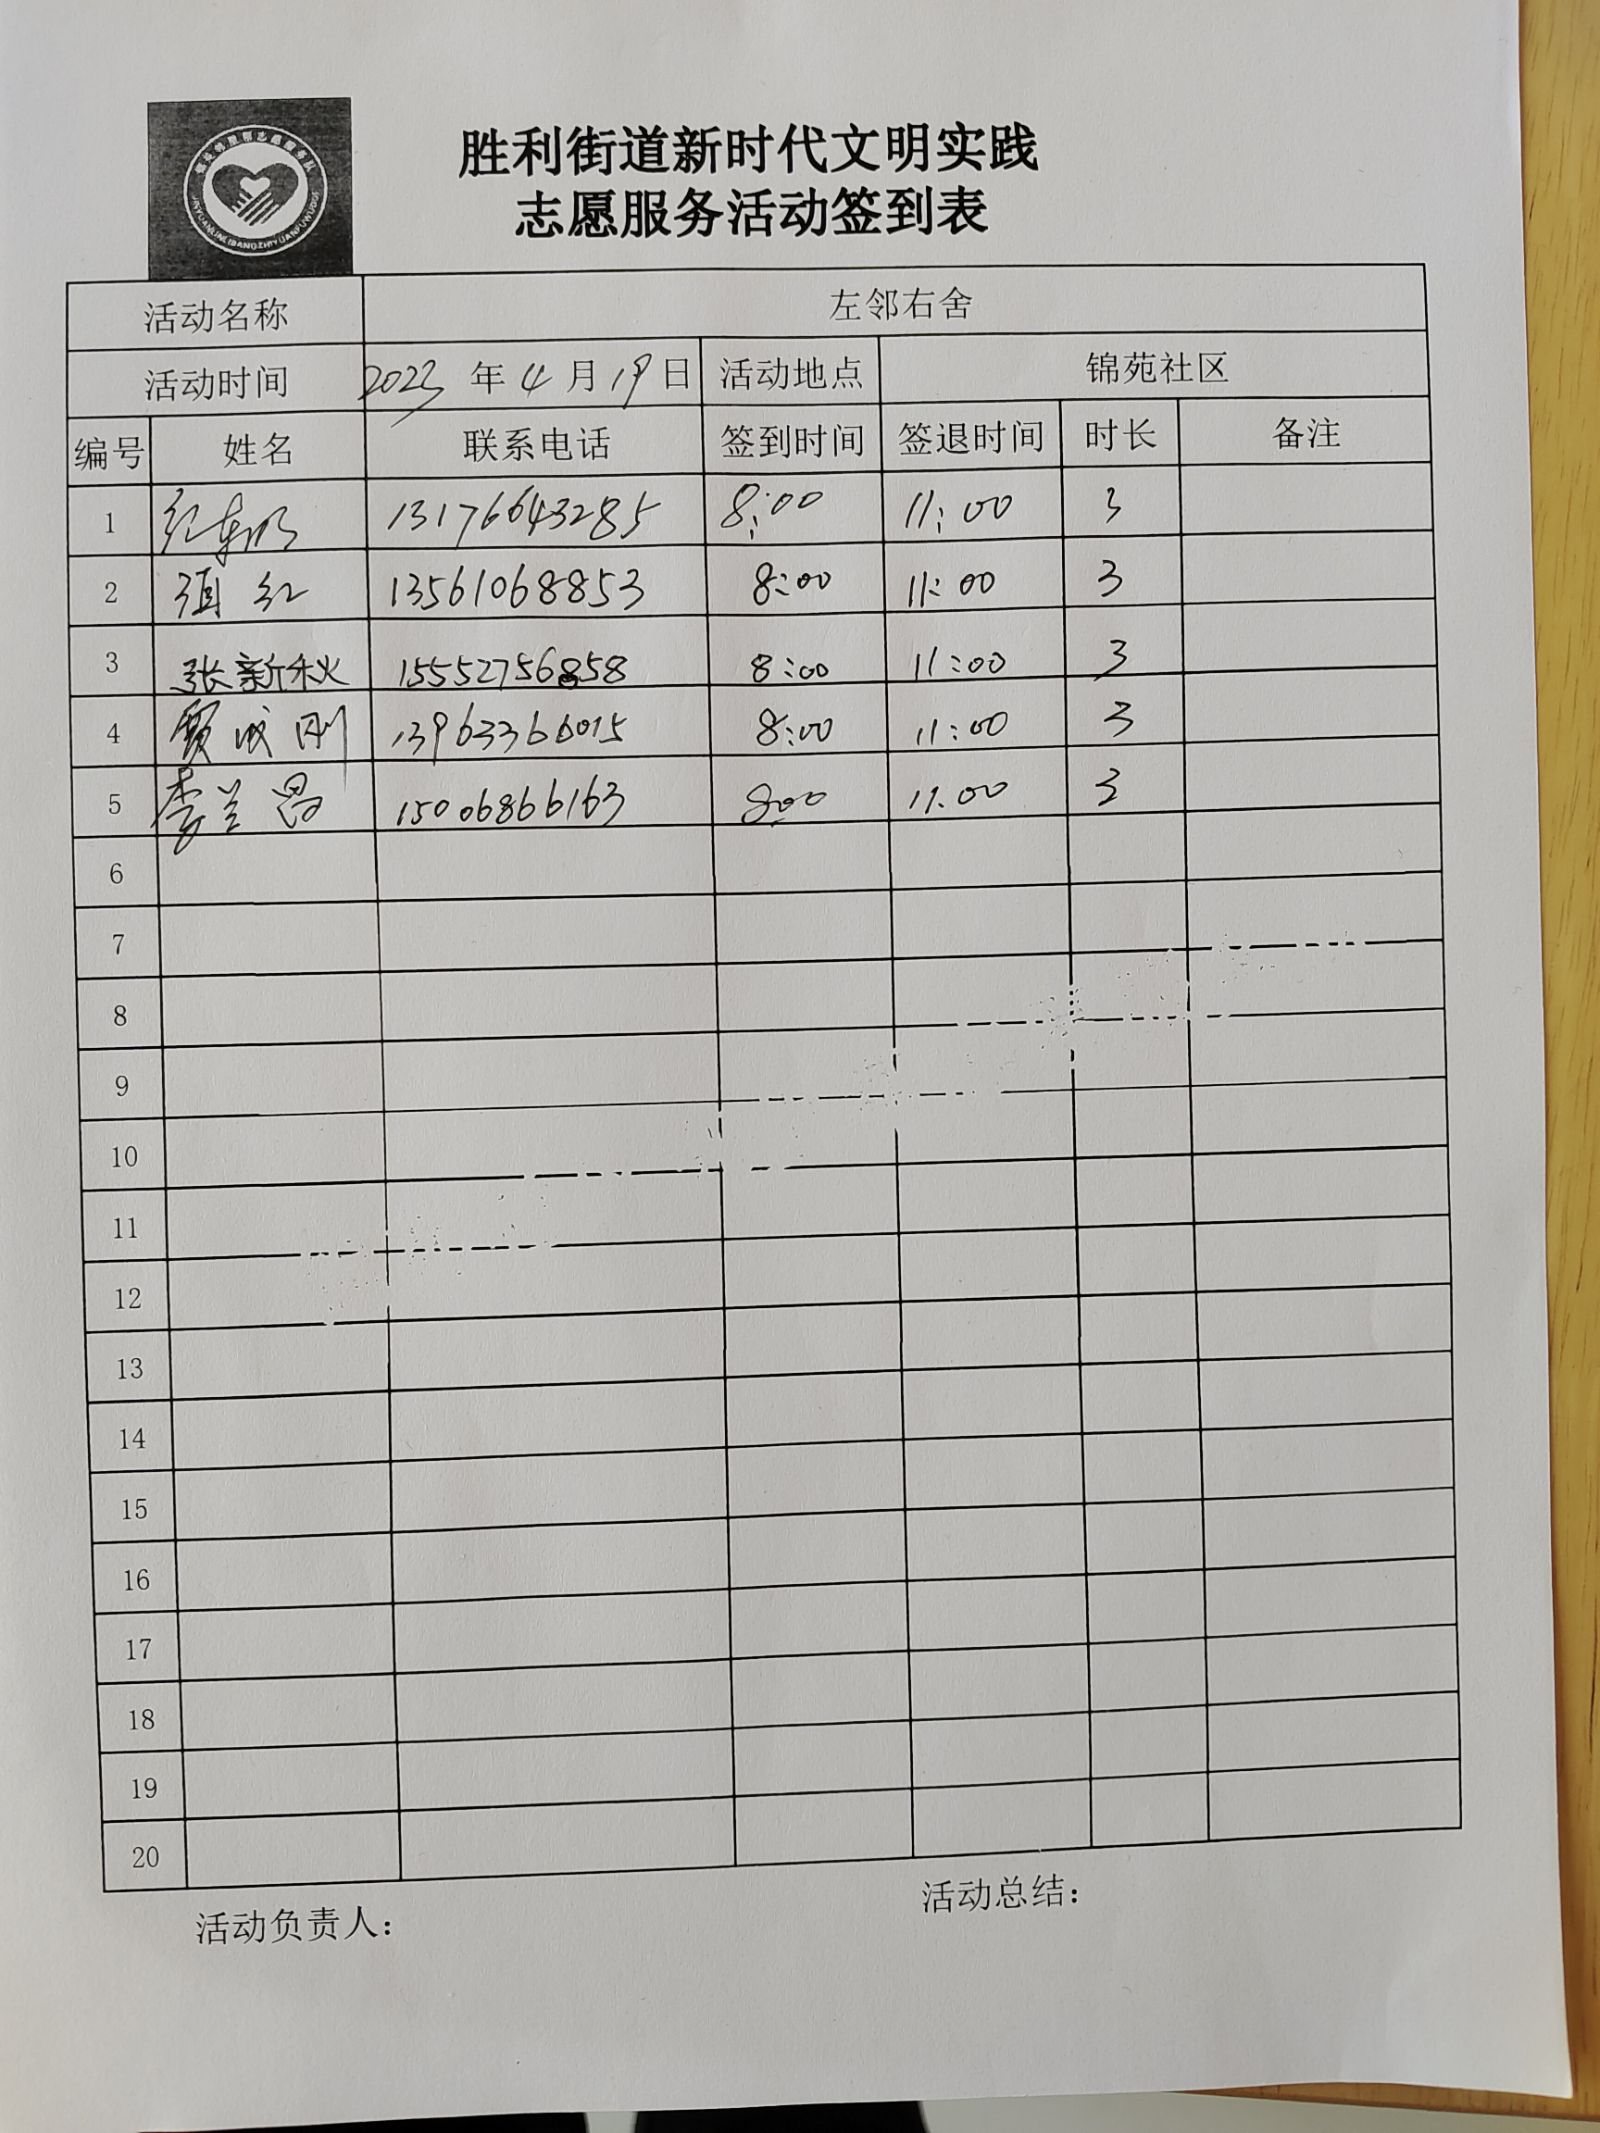 胜利街道新时代文明实践
志愿服务活动签到表
活动名称 左邻右舍
活动时间 2023 年 4 月 19 日 活动地点 锦苑社区
编号 姓名 联系电话 签到时间 签退时间 时长 备注
1 13176643285 8:00 11:00 3
2 红 13561068853 8:00 11:00 3
3 张新秋 15552756858 8:00 11:00 3
4 贾成刚 13963366015 8:00 11:00 3
5 李兰昌 15006866163 8:00 11:00 3
6
7
8
9
10
11
12
13
14
15
16
17
18
19
20
活动负责人: 活动总结: